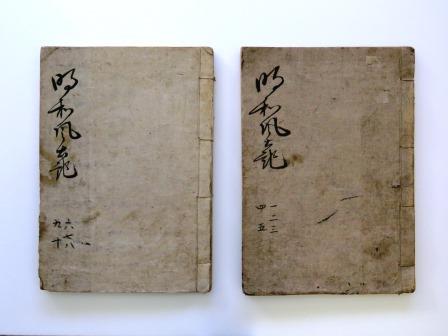 明和風
一二三
四五
明和風
六七八
九十